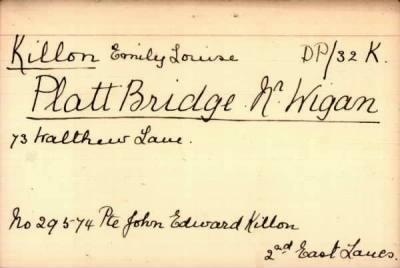 Killon Emily Louise DP/32 K.
Platt Bridge. Nr. Wigan
73 Walthew Lane.
No 29574 Pte John Edward Killon
2nd East Lancs.